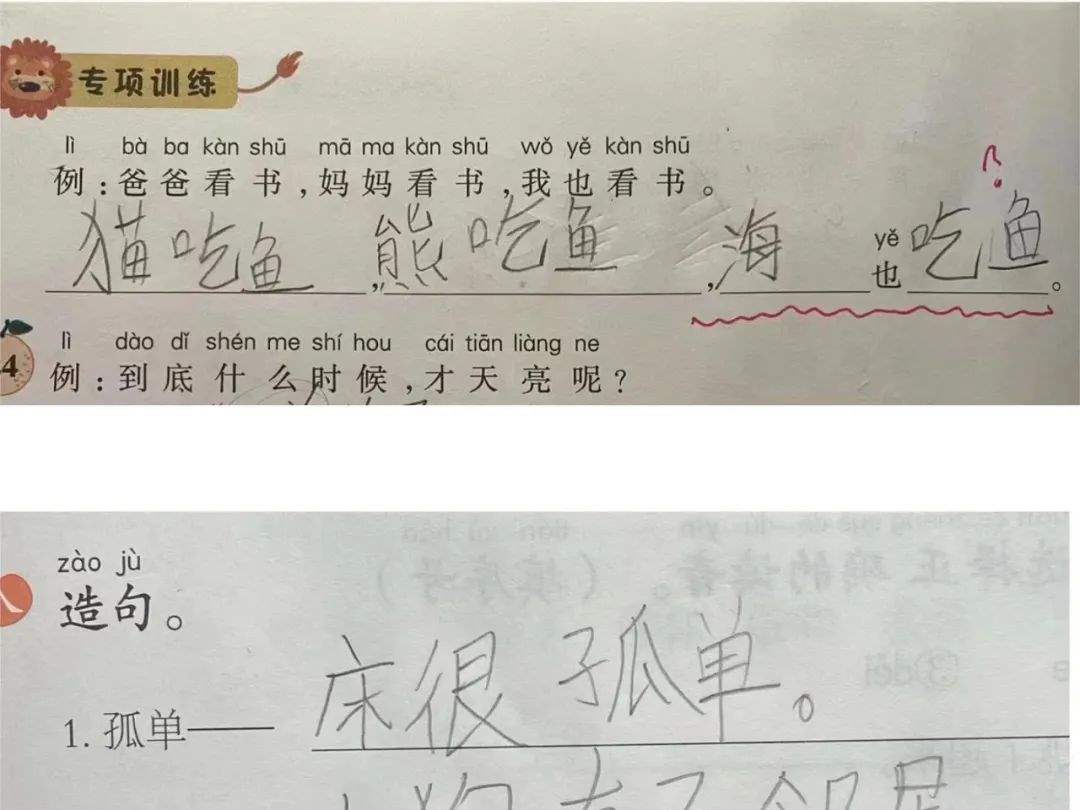 专项训练
lì bà ba kàn shū mā ma kàn shū wǒ yě kàn shū
例：爸爸看书，妈妈看书，我也看书。
?
猫吃鱼，熊吃鱼，海yě也吃鱼。
lì dào dǐ shén me shí hou cái tiān liàng ne
4 例：到底什么时候，才天亮呢？
zào jù
八 造句。
1. 孤单——床很孤单。